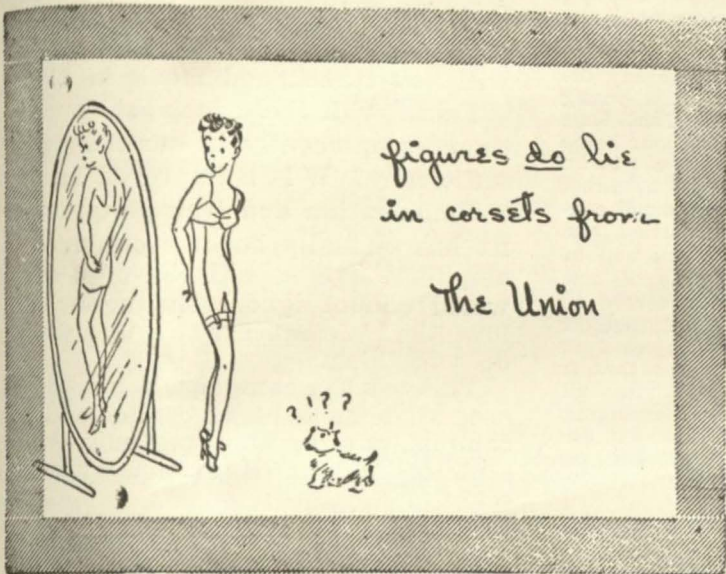 figures do lie
in corsets from
The Union
! ? ? ?